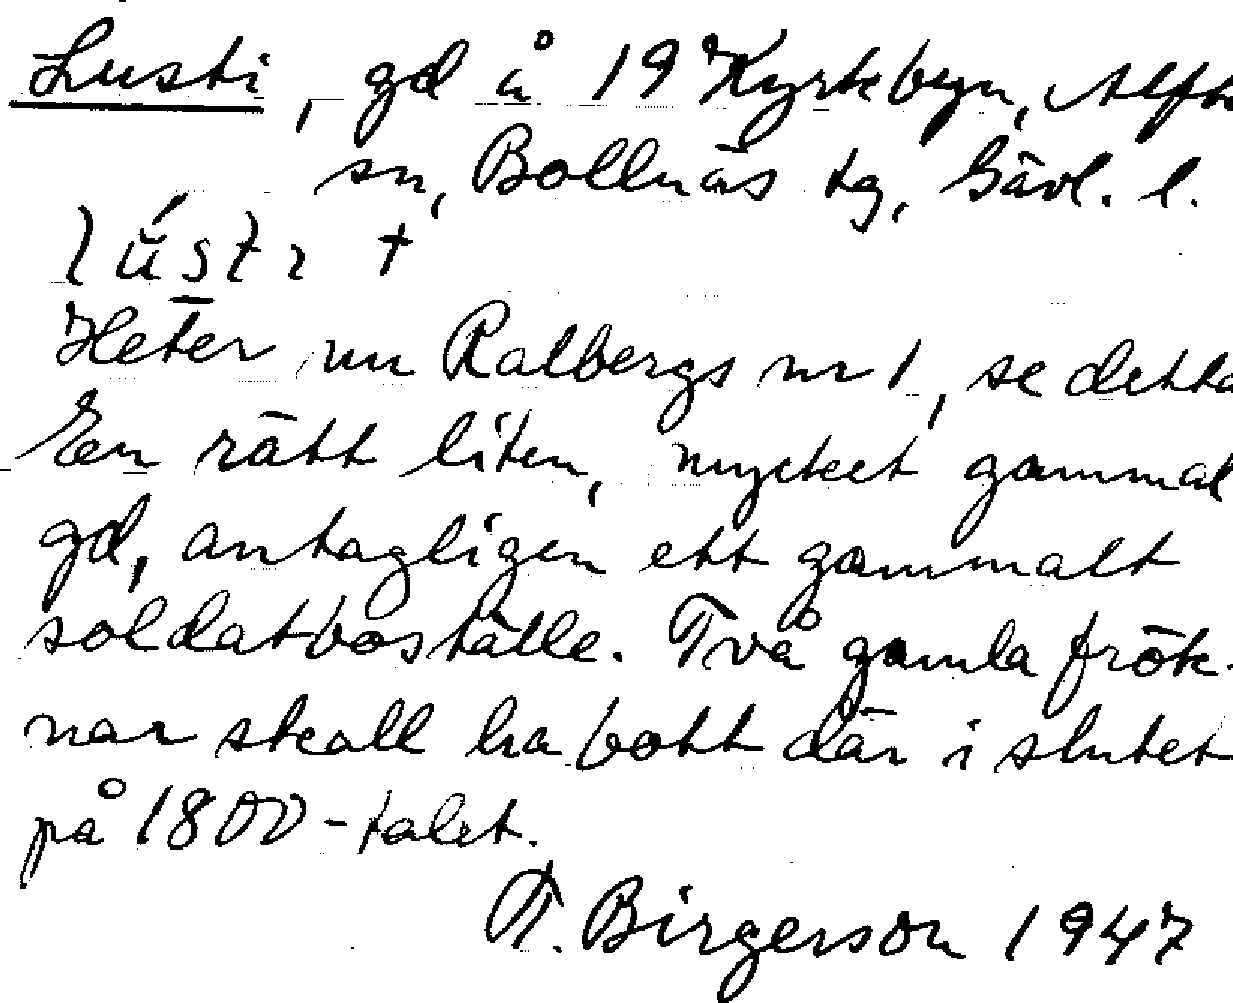 Lusti, gd å 19 Kyrkbyn, Alfta
sn, Bollnäs tg, Gävl. l.
lú̄stɩ +
Heter nu Ralbergs nr 1, se detta
En rätt liten, mycket gammal
gd, antagligen ett gammalt
soldatboställe. Två gamla frök-
nar skall ha bott där i slutet
på 1800-talet.
F. Birgerson 1947